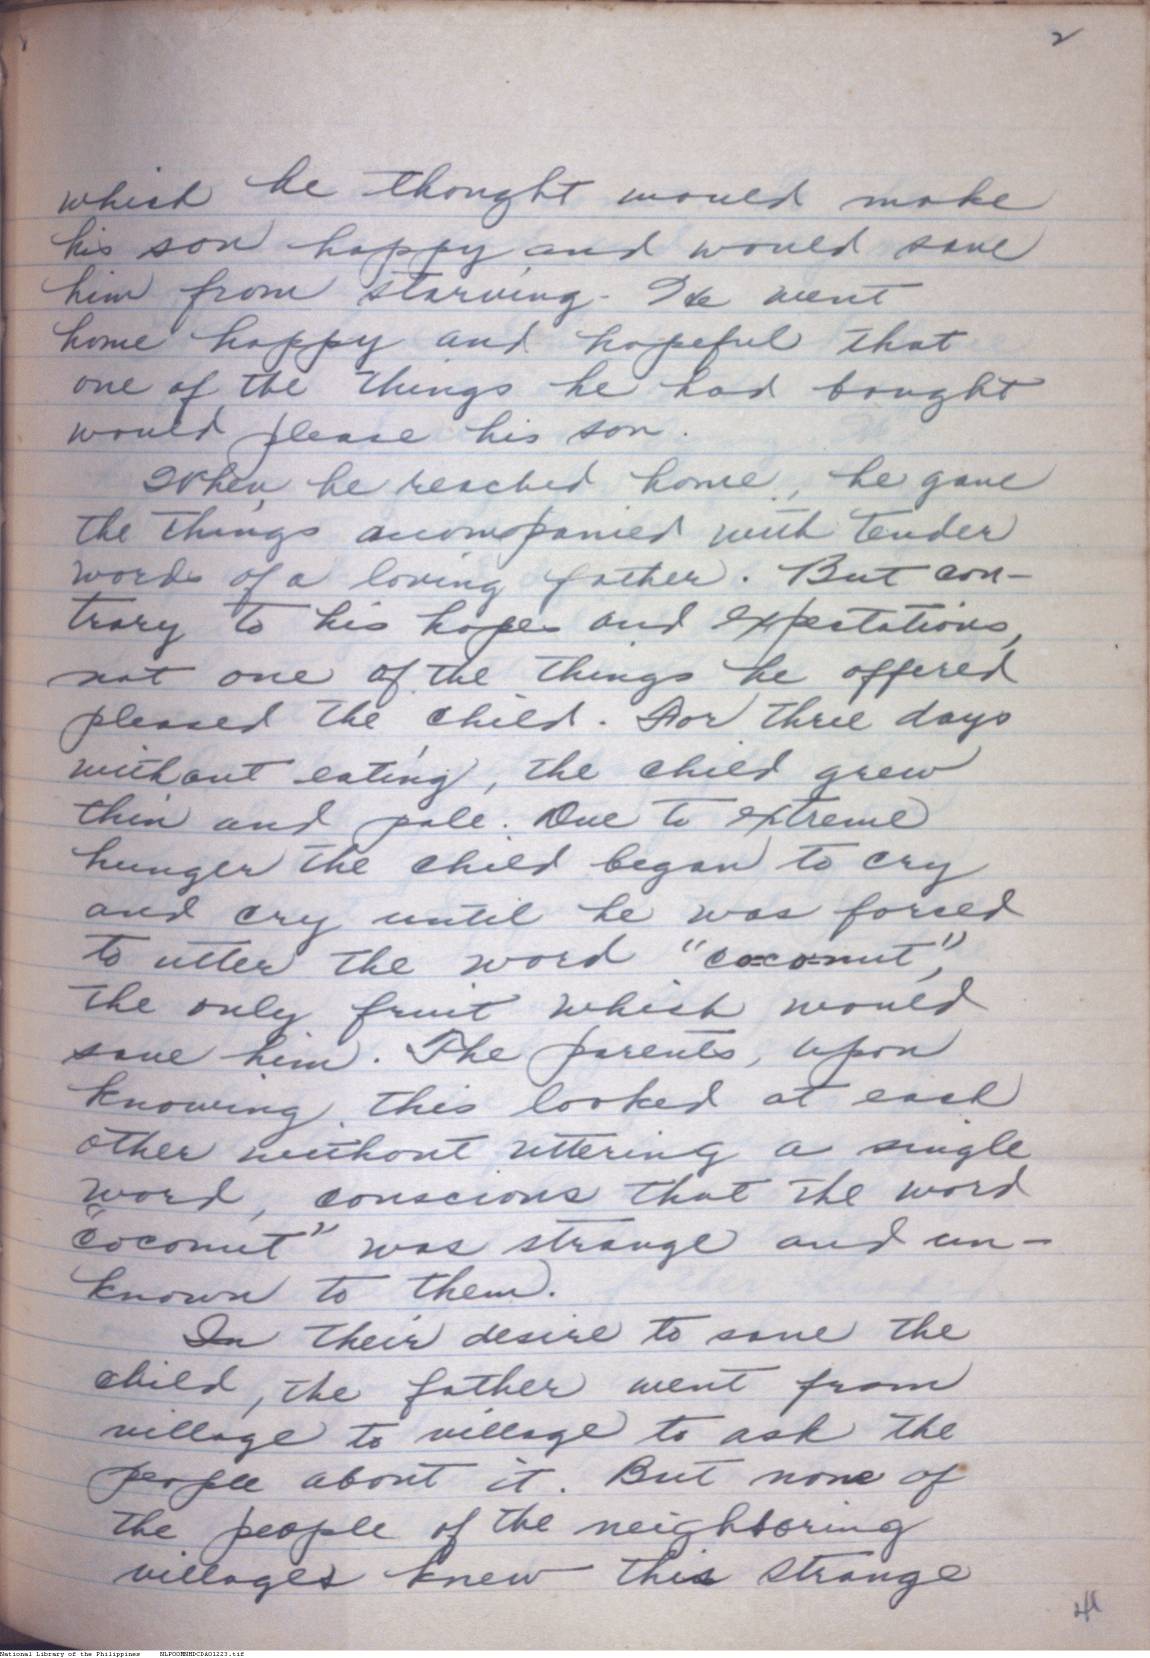 2
which he thought would make
his son happy and would save
him from starving. He went
home happy and hopeful that
one of the things he had bought
would please his son.
When he reached home, he gave
the things accompanied with tender
words of a loving father. But con-
trary to his hopes and expectations,
not one of the things he offered
pleased the child. For three days
without eating, the child grew
thin and pale. Due to extreme
hunger the child began to cry
and cry until he was forced
to utter the word "coconut",
the only fruit which would
save him. The parents, upon
knowing this looked at each
other without uttering a single
word, conscious that the word
"coconut" was strange and un-
known to them.
In their desire to save the
child, the father went from
village to village to ask the
people about it. But none of
the people of the neighboring
villages knew this strange
National Library of the Philippines NLPOOMNHDCDA01223.tif